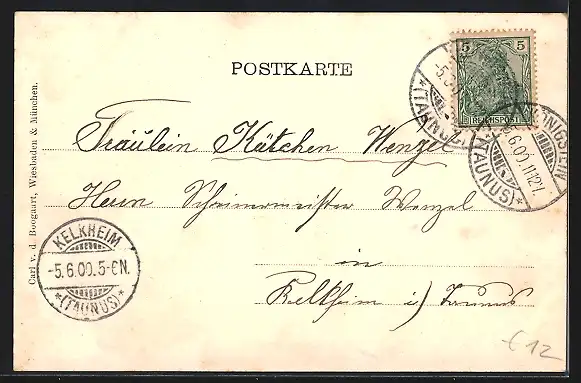 POSTKARTE
5 5
REICHSPOST
(TAUNUS)
KÖNIGSTEIN
5.6.00.11-12V.
(TAUNUS)
Fräulein Kätchen Wenzel
Herrn Schreinermeister Wenzel
in
Kelkheim i) Taunus
KELKHEIM
-5.6.00.5-6N.
(TAUNUS)
Carl v. d. Boogaart, Wiesbaden & München.
€12